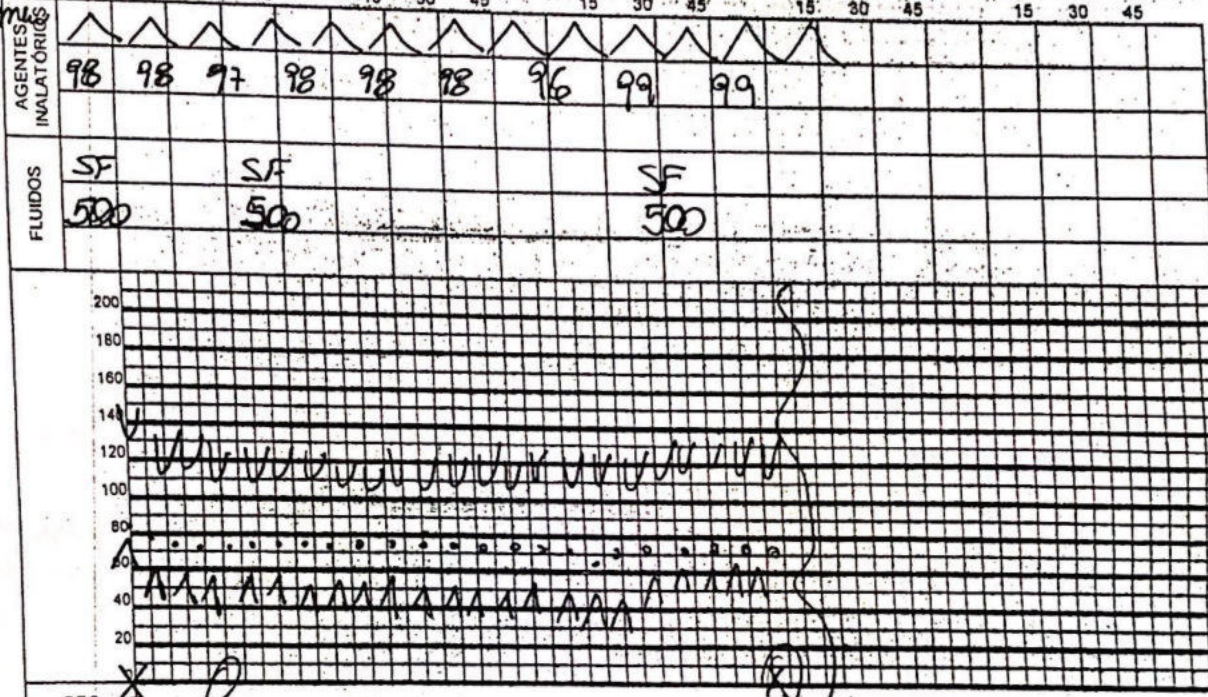 15 30 45 15 30 45 15 30 45
AGENTES INALATÓRIOS
98 98 97 98 98 98 96 99 99
FLUIDOS
SF SF SF
500 500 500
200
180
160
140
120
100
80
60
40
20